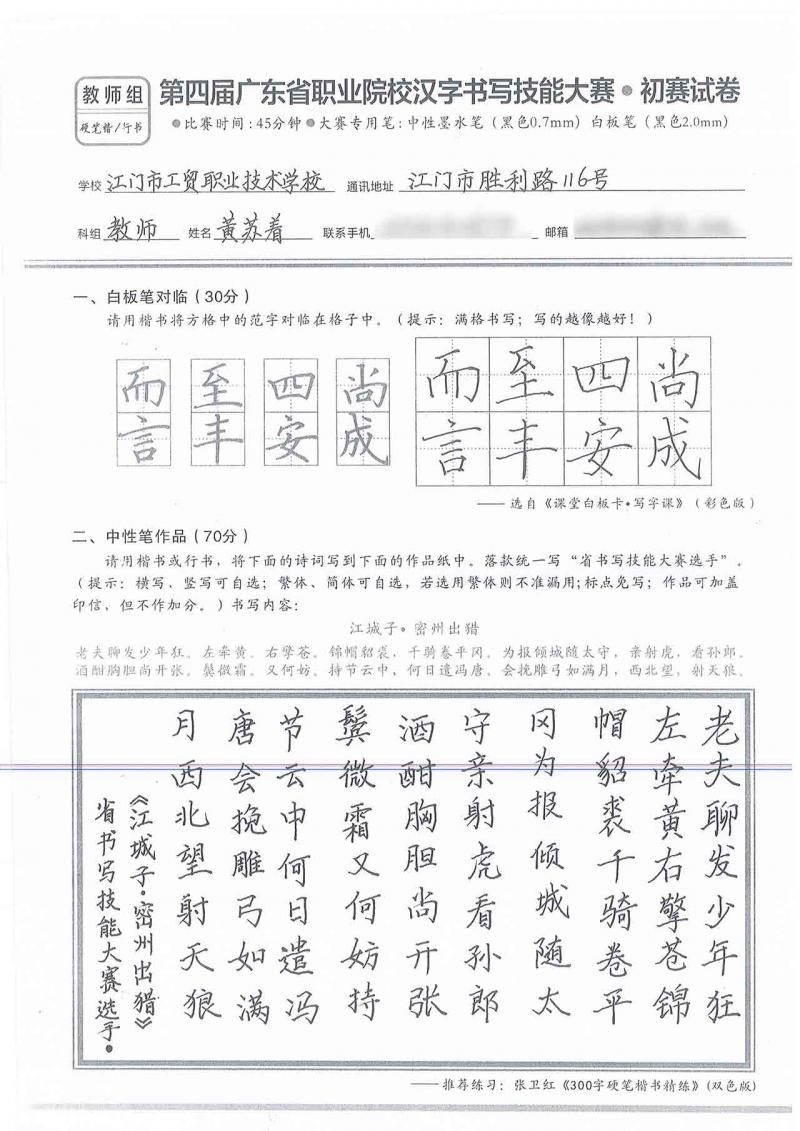 教师组
硬笔楷/行书
第四届广东省职业院校汉字书写技能大赛●初赛试卷
●比赛时间:45分钟●大赛专用笔:中性墨水笔(黑色0.7mm)白板笔(黑色2.0mm)
学校 江门市工贸职业技术学校 通讯地址 江门市胜利路116号
科组 教师 姓名 黄苏着 联系手机 邮箱
一、白板笔对临(30分)
请用楷书将方格中的范字对临在格子中。(提示:满格书写;写的越像越好!)
而至四尚 而至四尚
言丰安成 言丰安成
——选自《课堂白板卡·写字课》(彩色版)
二、中性笔作品(70分)
请用楷书或行书,将下面的诗词写到下面的作品纸中。落款统一写“省书写技能大赛选手”。
(提示:横写、竖写可自选;繁体、简体可自选,若选用繁体则不准漏用;标点免写;作品可加盖
印信,但不作加分。)书写内容:
江城子·密州出猎
老夫聊发少年狂。左牵黄。右擎苍。锦帽貂裘,千骑卷平冈。为报倾城随太守,亲射虎,看孙郎。
酒酣胸胆尚开张。鬓微霜。又何妨。持节云中,何日遣冯唐。会挽雕弓如满月,西北望,射天狼。
老夫聊发少年狂
左牵黄右擎苍锦
帽貂裘千骑卷平
冈为报倾城随太
守亲射虎看孙郎
酒酣胸胆尚开张
鬓微霜又何妨持
节云中何日遣冯
唐会挽雕弓如满
月西北望射天狼
《江城子·密州出猎》
省书写技能大赛选手·
——推荐练习:张卫红《300字硬笔楷书精练》(双色版)